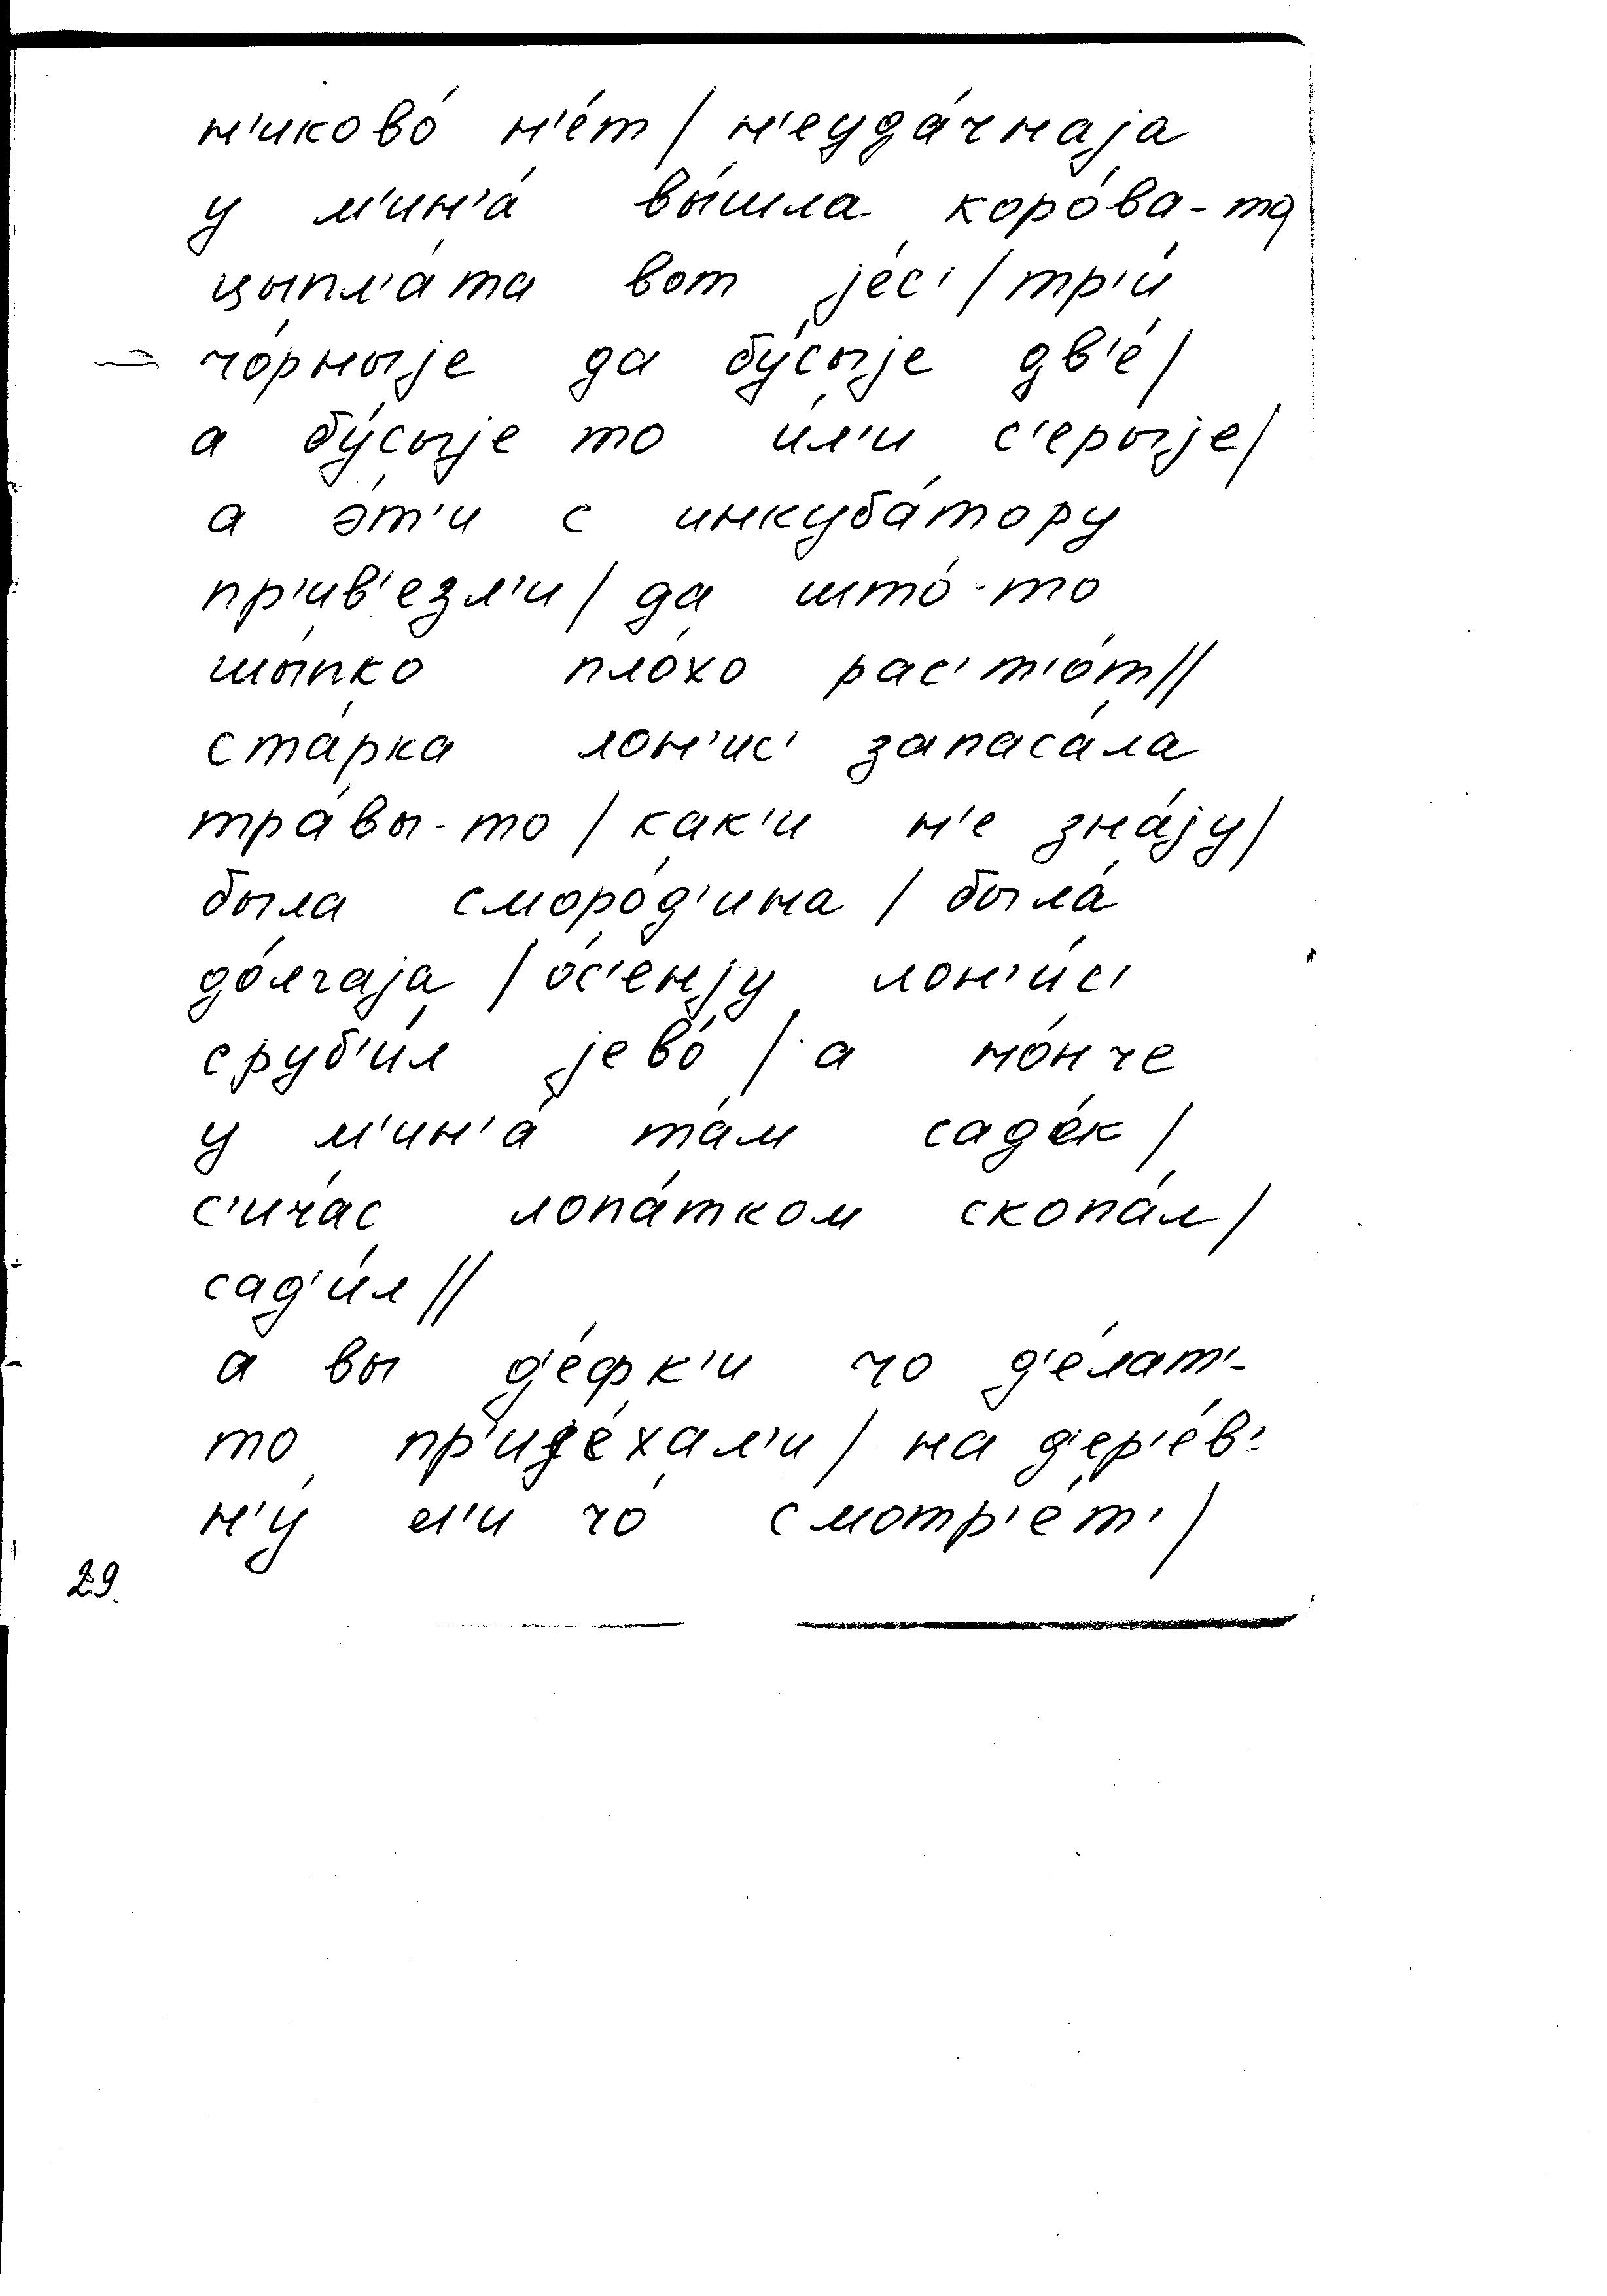 н'иково́ н'е́т / н'еуда́чнаjа
у м'ин'а́ вы́шла коро́ва-то
цыпл'а́та вот jе́с' / тр'и́
чо́рныjе да бу́сыjе дв'е́ /
а бу́сыjе то и́л'и с'ерыjе /
а э́т'и с инкуба́тору
пр'ив'езл'и / да што́-то
шы́пко пло́хо рас'т'о́т //
ста́рка лон'ис' запаса́ла
тра́вы-то / как'и н'е зна́jу /
была сморо́д'ина / была́
до́лгаjа / о́с'енjу лон'и́с'
сруб'и́л jево́ / а но́нче
у м'ин'а́ та́м садо́к /
с'ича́с лопа́тком скопа́л /
сад'и́л //
а вы д'е́фк'и чо д'е́лат'-
то пр'иjе́хал'и / на д'ер'е́в'-
н'у́ ел'и чо́ смотр'е́т' /
29.